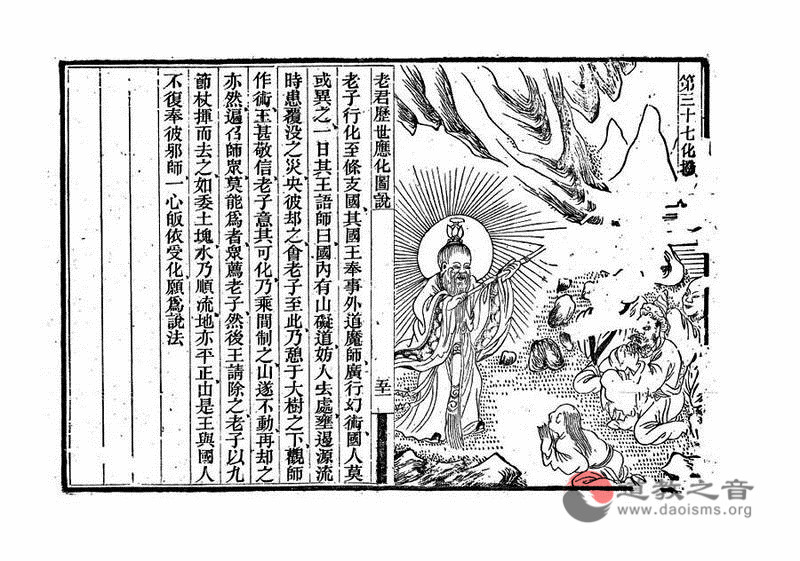 第三十七化
老君歷世應化圖說
老子行化至條支國其國王奉事外道魔師廣行幻術國人莫
或異之一日其王語師曰國內有山礙道妨人去處壅遏源流
時患覆没之災央彼却之會老子至此乃憩于大樹之下觀師
作術王甚敬信老子意其可化乃乘間制之山遂不動再却之
亦然遍召師眾莫能為者眾薦老子然後王請除之老子以九
節杖揮而去之如委土塊水乃順流地亦平正由是王與國人
不復奉彼邪師一心皈依受化願為說法
道教之音
www.daoisms.org